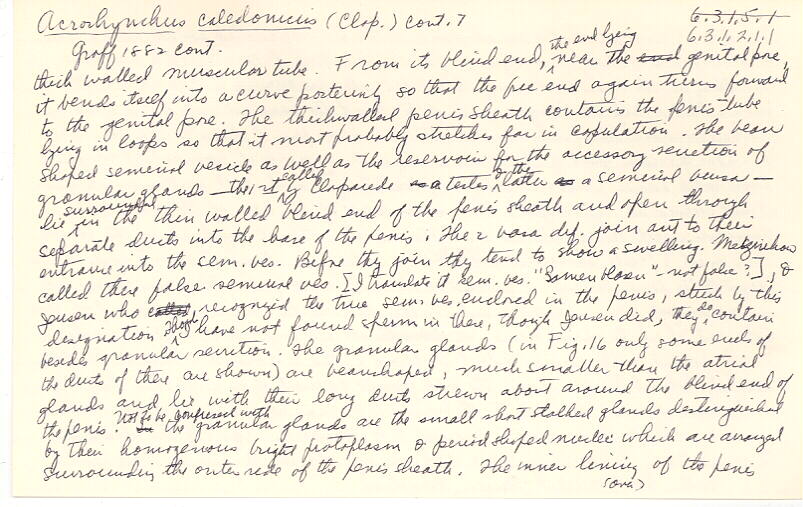 Acrorhynchus caledonicus (Clap.) cont. 7
6.3.1.5.1
6.3.1.2.1.1
Graff 1882 cont.
thick walled muscular tube. From its blind end, the end lying near the end genital pore,
it bends itself into a curve posteriorly so that the free end again turns forward
to the genital pore. The thickwalled penis sheath contains the penis tube
lying in loops so that it most probably stretches far in copulation. The bean
shaped seminal vesicle as well as the reservoir for the accessory secretion of
granular glands — the 1st called by Claparede as a testes & the latter as a seminal bursa —
lie surrounded in the thin walled blind end of the penis sheath and open through
separate ducts into the base of the penis. The 2 vasa def. join ant to their
entrance into the sem. ves. Before they join they tend to show a swelling. Metznikow
called these false seminal ves. [I translate it sem. ves. "Samenblasen" - not false?], &
Jensen who called recognized the true sem. ves. enclosed in the penis, stuck by this
designation. I have not found sperm in these, though Jensen did, they do contain
besides granular secretion. The granular glands (in Fig. 16 only some ends of
the ducts of these are shown) are beanshaped, much smaller than the atrial
glands and lie with their long ducts strewn about around the blind end of
the penis. Not to be confused with the granular glands are the small short stalked glands distinguished
by their homogenous bright protoplasm & period shaped nuclei which are arranged
surrounding the outer side of the penis sheath. The inner lining of the penis
(over)